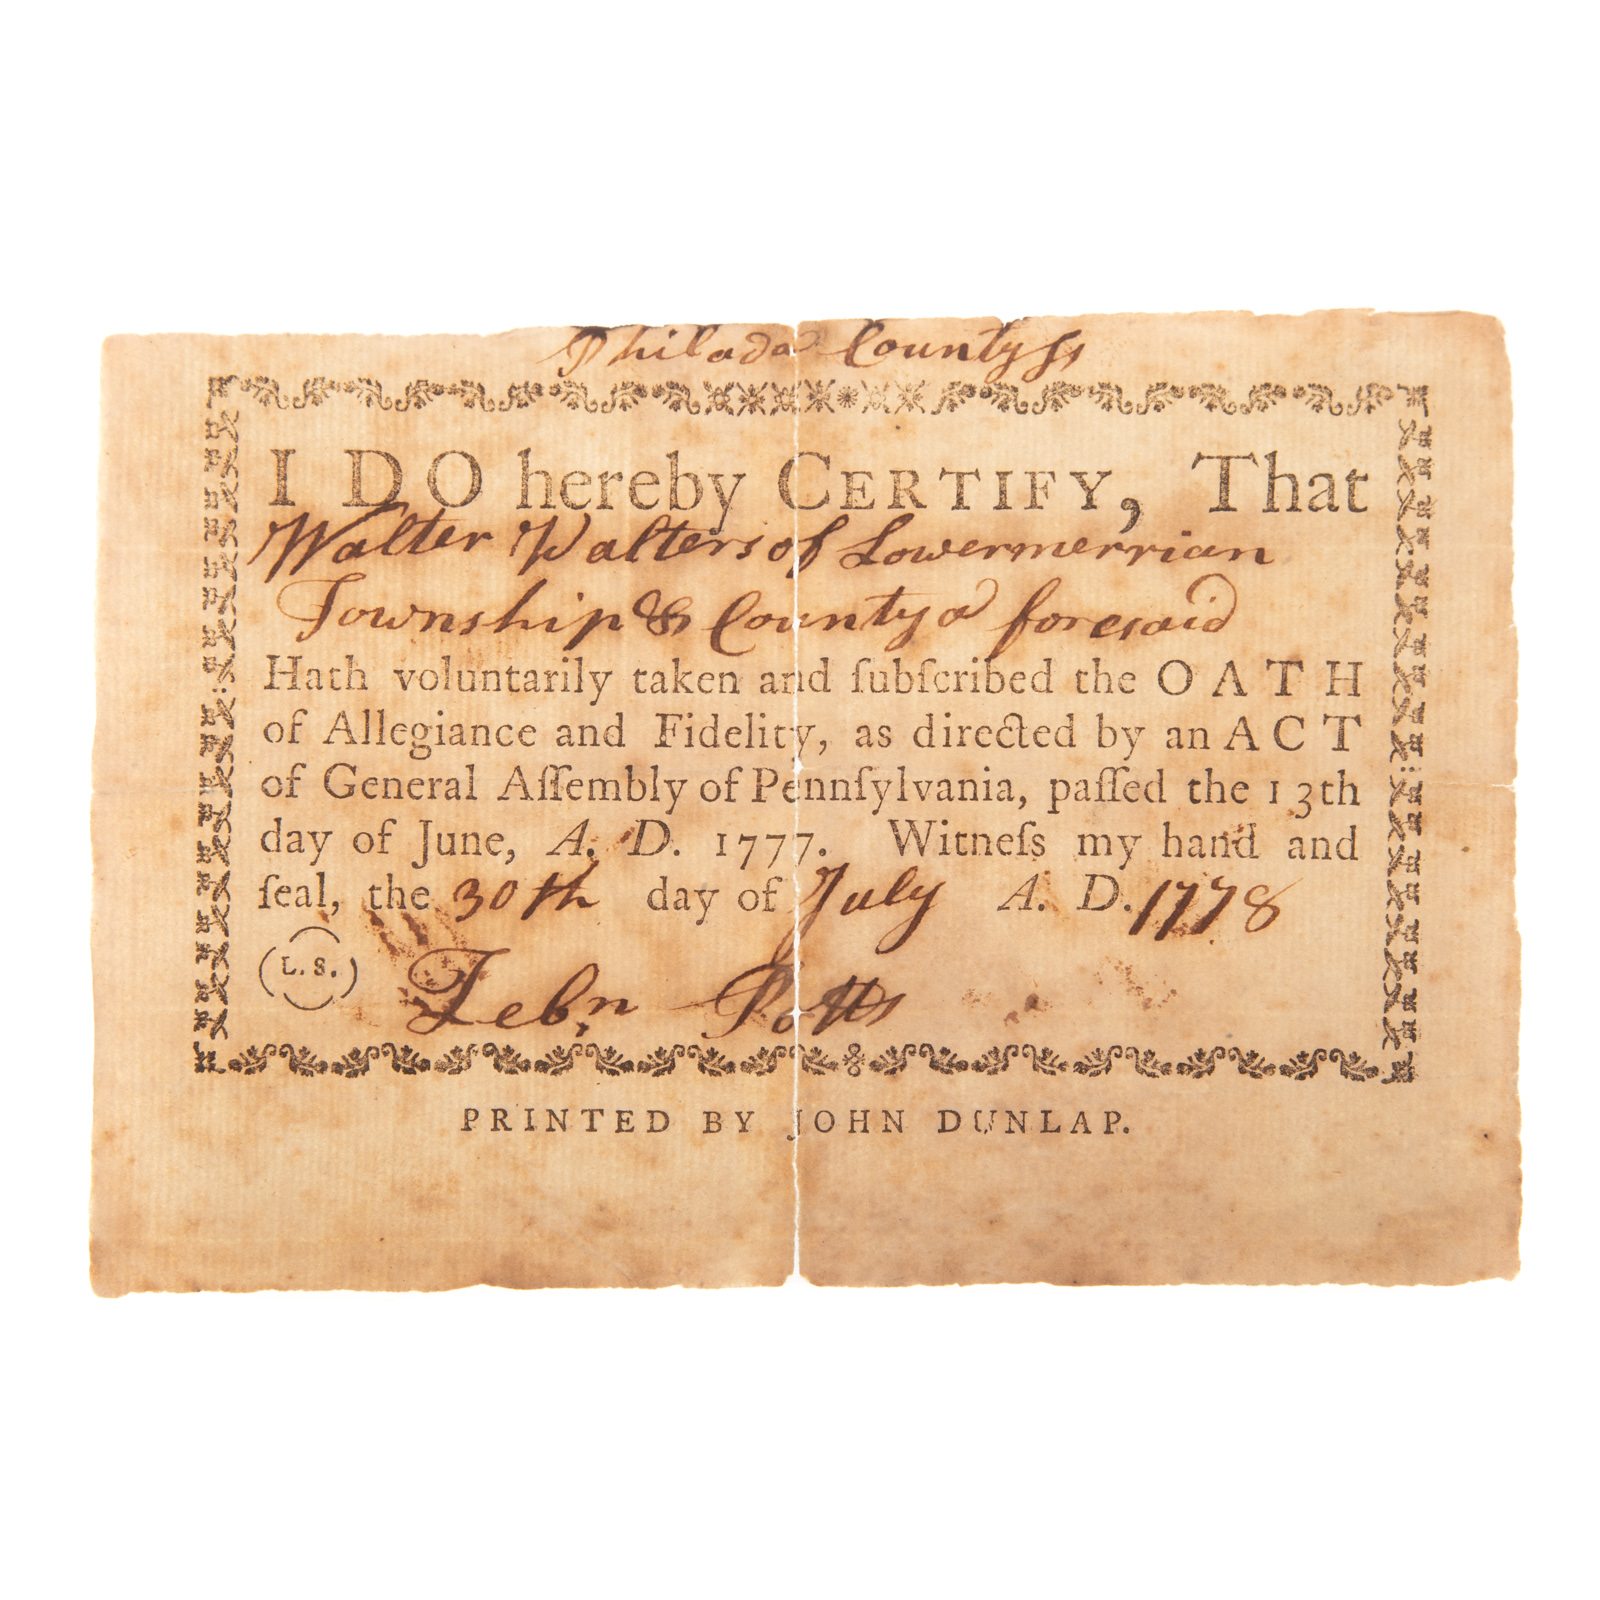 Philada County ss
I DO hereby CERTIFY, That
Walter Walters of Lowermerrian
Township & County a foresaid
Hath voluntarily taken and ſubſcribed the OATH
of Allegiance and Fidelity, as directed by an ACT
of General Aſſembly of Pennſylvania, paſſed the 13th
day of June, A. D. 1777. Witneſs my hand and
ſeal, the 30th day of July A. D. 1778
L. S.
Zebn Potts
PRINTED BY JOHN DUNLAP.